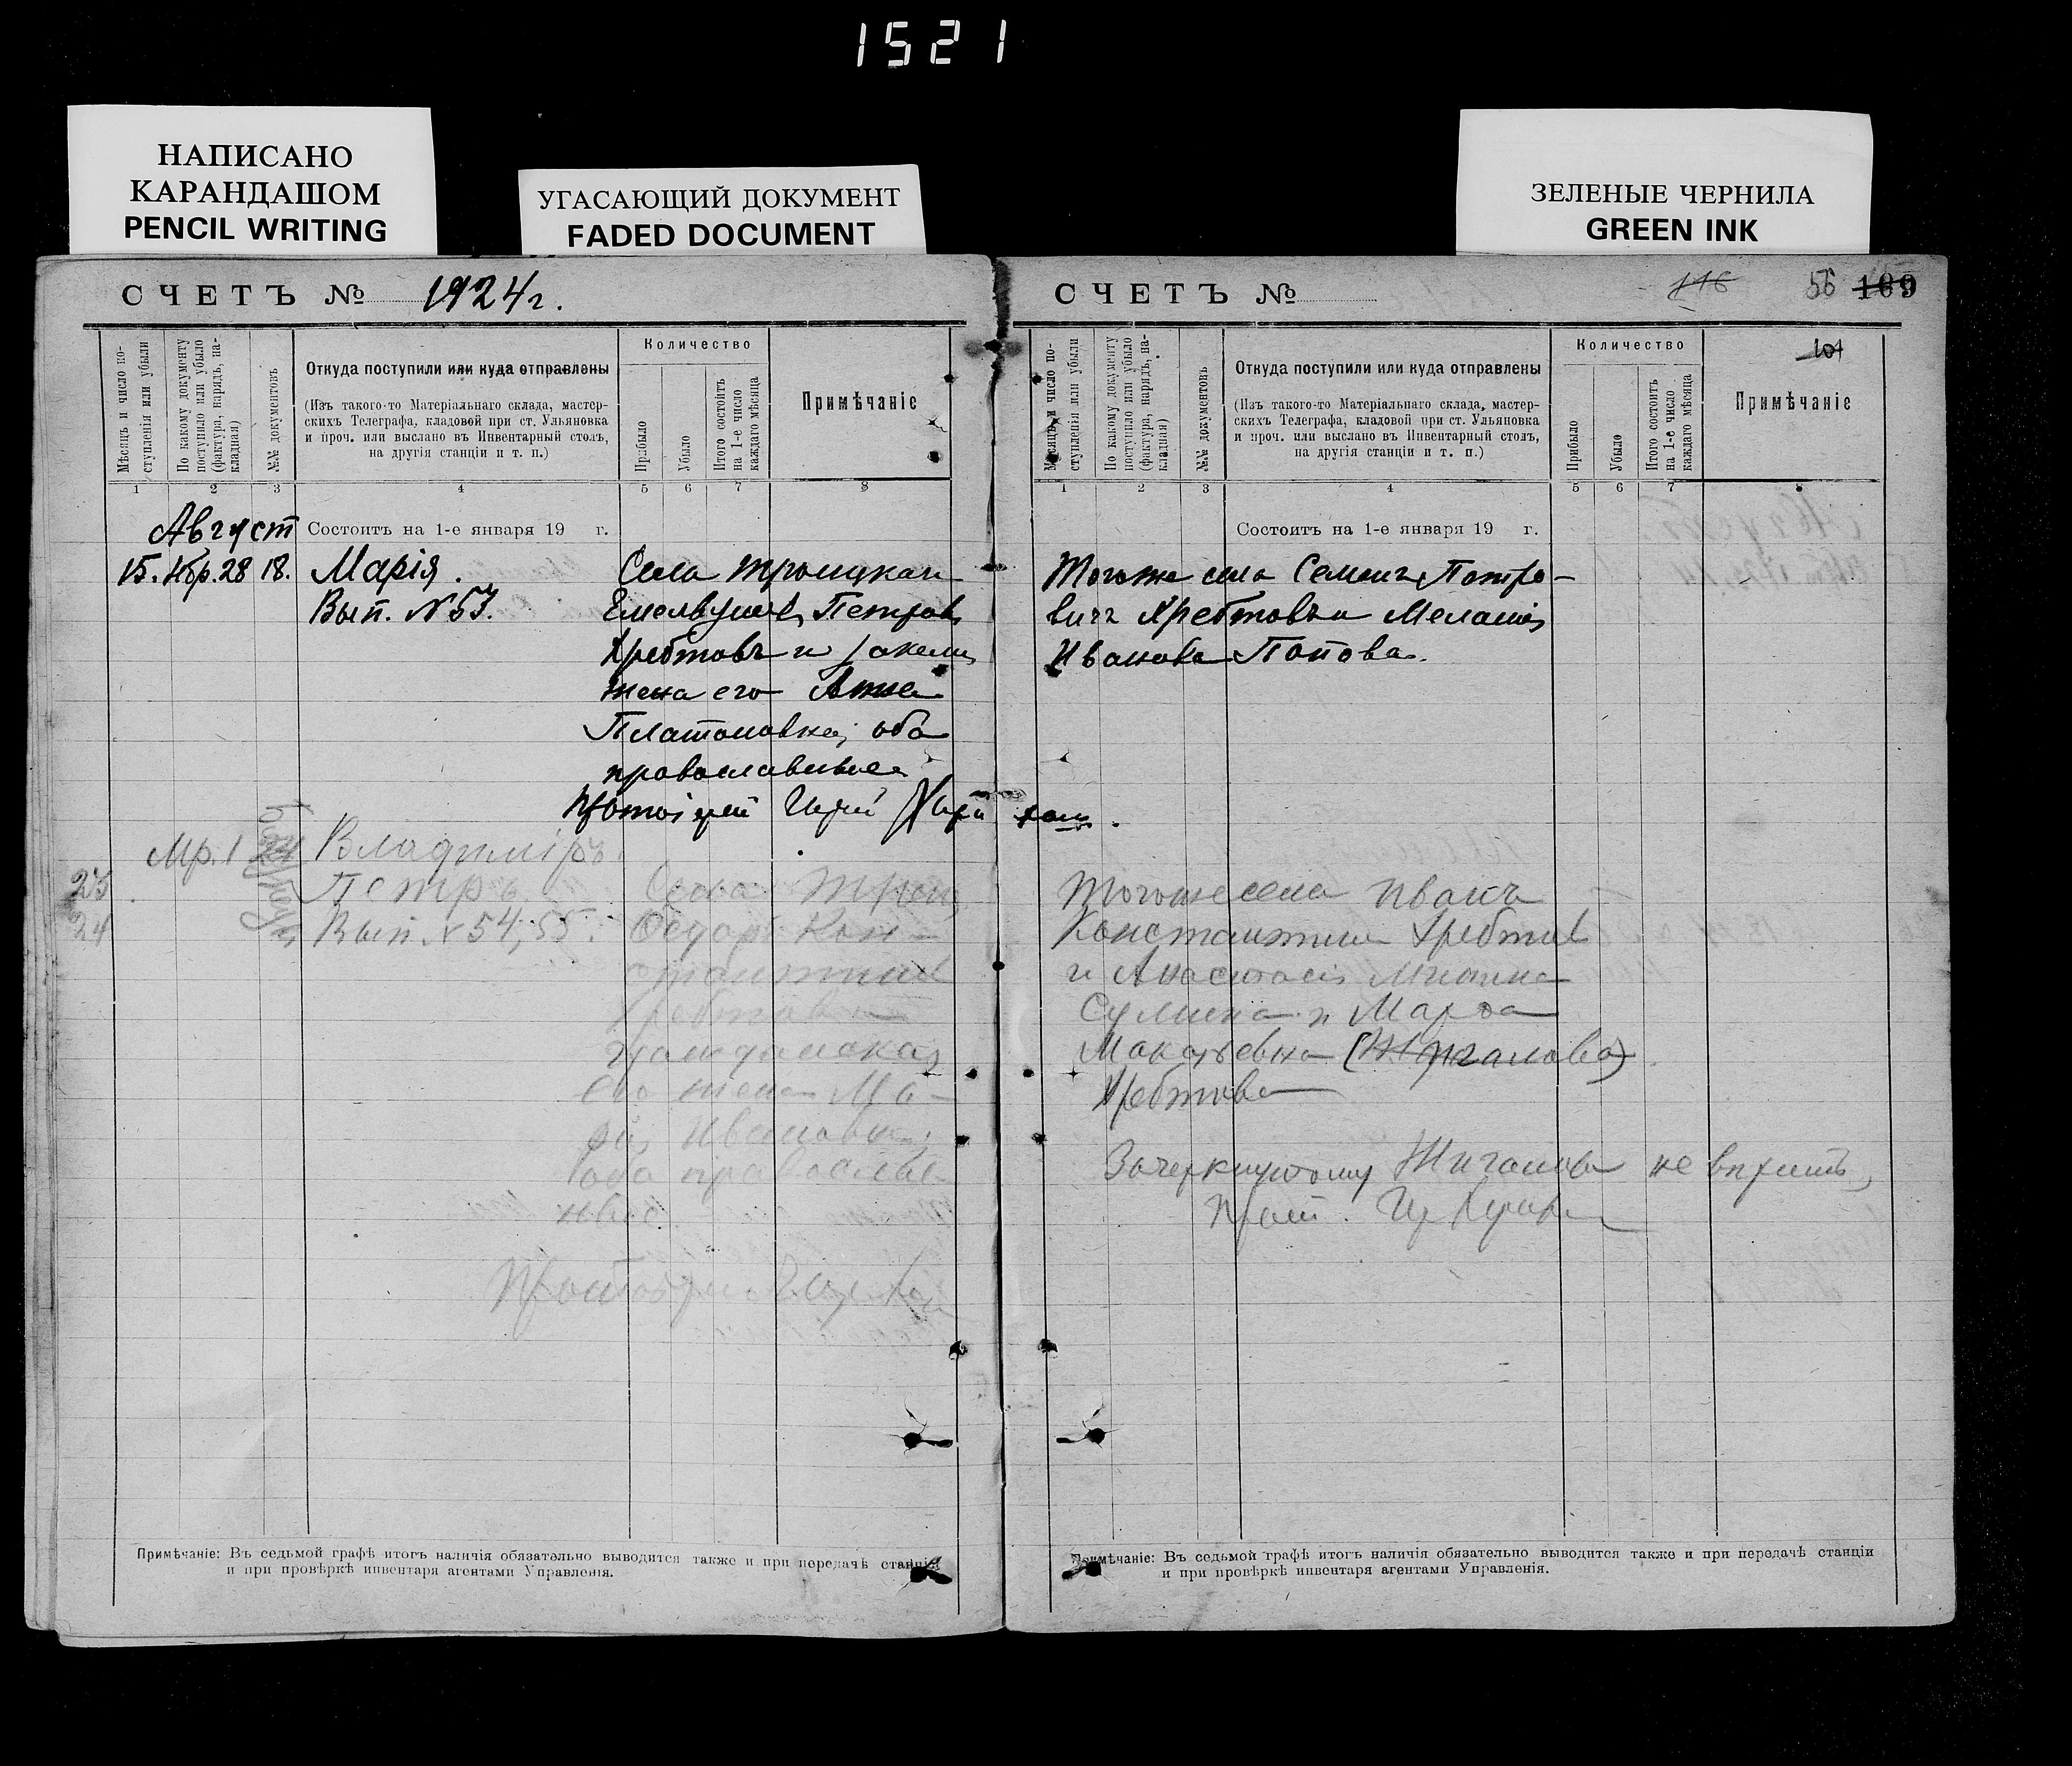 1521
НАПИСАНО
КАРАНДАШОМ
PENCIL WRITING
УГАСАЮЩИЙ ДОКУМЕНТ
FADED DOCUMENT
ЗЕЛЕНЫЕ ЧЕРНИЛА
GREEN INK
СЧЕТЪ № 1924 г.
Мѣсяцъ и число по-
ступленія или убыли
По какому документу
поступило или убыло
(фактура, нарядъ, на-
кладная)
№№ документовъ
Откуда поступили или куда отправлены
(Изъ такого-то Матеріальнаго склада, мастер-
скихъ Телеграфа, кладовой при ст. Ульяновка
и проч. или выслано въ Инвентарный столъ,
на другія станціи и т. п.)
Количество
Прибыло
Убыло
Итого состоитъ
на 1-е число
каждаго мѣсяца
Примѣчаніе
1 2 3 4 5 6 7 8
Август Состоитъ на 1-е января 19 г.
15. Нбр. 28 18. Марія. Села Троицкаго
Вып. № 53. Петровъ
Хребтовъ и законн
жена его Анна
Платоновна, оба
православные
Протоіерей
Мр. 1 Владиміръ
23 Петръ Села Троиц
24 Вып. № 54, 55. Ѳедоръ Кон-
стантинов
Хребтов и
гражданская
его жена Ма-
рія Ивановна,
оба православ
ные
Протоіерей
Примѣчаніе: Въ седьмой графѣ итогъ наличія обязательно выводится также и при передачѣ станціи
и при провѣркѣ инвентаря агентами Управленія.
СЧЕТЪ №
116 56 109
101
Мѣсяцъ и число по-
ступленія или убыли
По какому документу
поступило или убыло
(фактура, нарядъ, на-
кладная)
№№ документовъ
Откуда поступили или куда отправлены
(Изъ такого-то Матеріальнаго склада, мастер-
скихъ Телеграфа, кладовой при ст. Ульяновка
и проч. или выслано въ Инвентарный столъ,
на другія станціи и т. п.)
Количество
Прибыло
Убыло
Итого состоитъ
на 1-е число
каждаго мѣсяца
Примѣчаніе
1 2 3 4 5 6 7 8
Состоитъ на 1-е января 19 г.
Тогоже села Семенъ Петро-
вичъ Хребтовъ и Меланія
Иванова Попова.
Тогоже села Иванъ
Константинов Хребтов
и Анастасія
Сумина и Марѳа
(Жиганова)
Хребтова
Зачеркнутому Жиганова не верить,
Прот.
Примѣчаніе: Въ седьмой графѣ итогъ наличія обязательно выводится также и при передачѣ станціи
и при провѣркѣ инвентаря агентами Управленія.